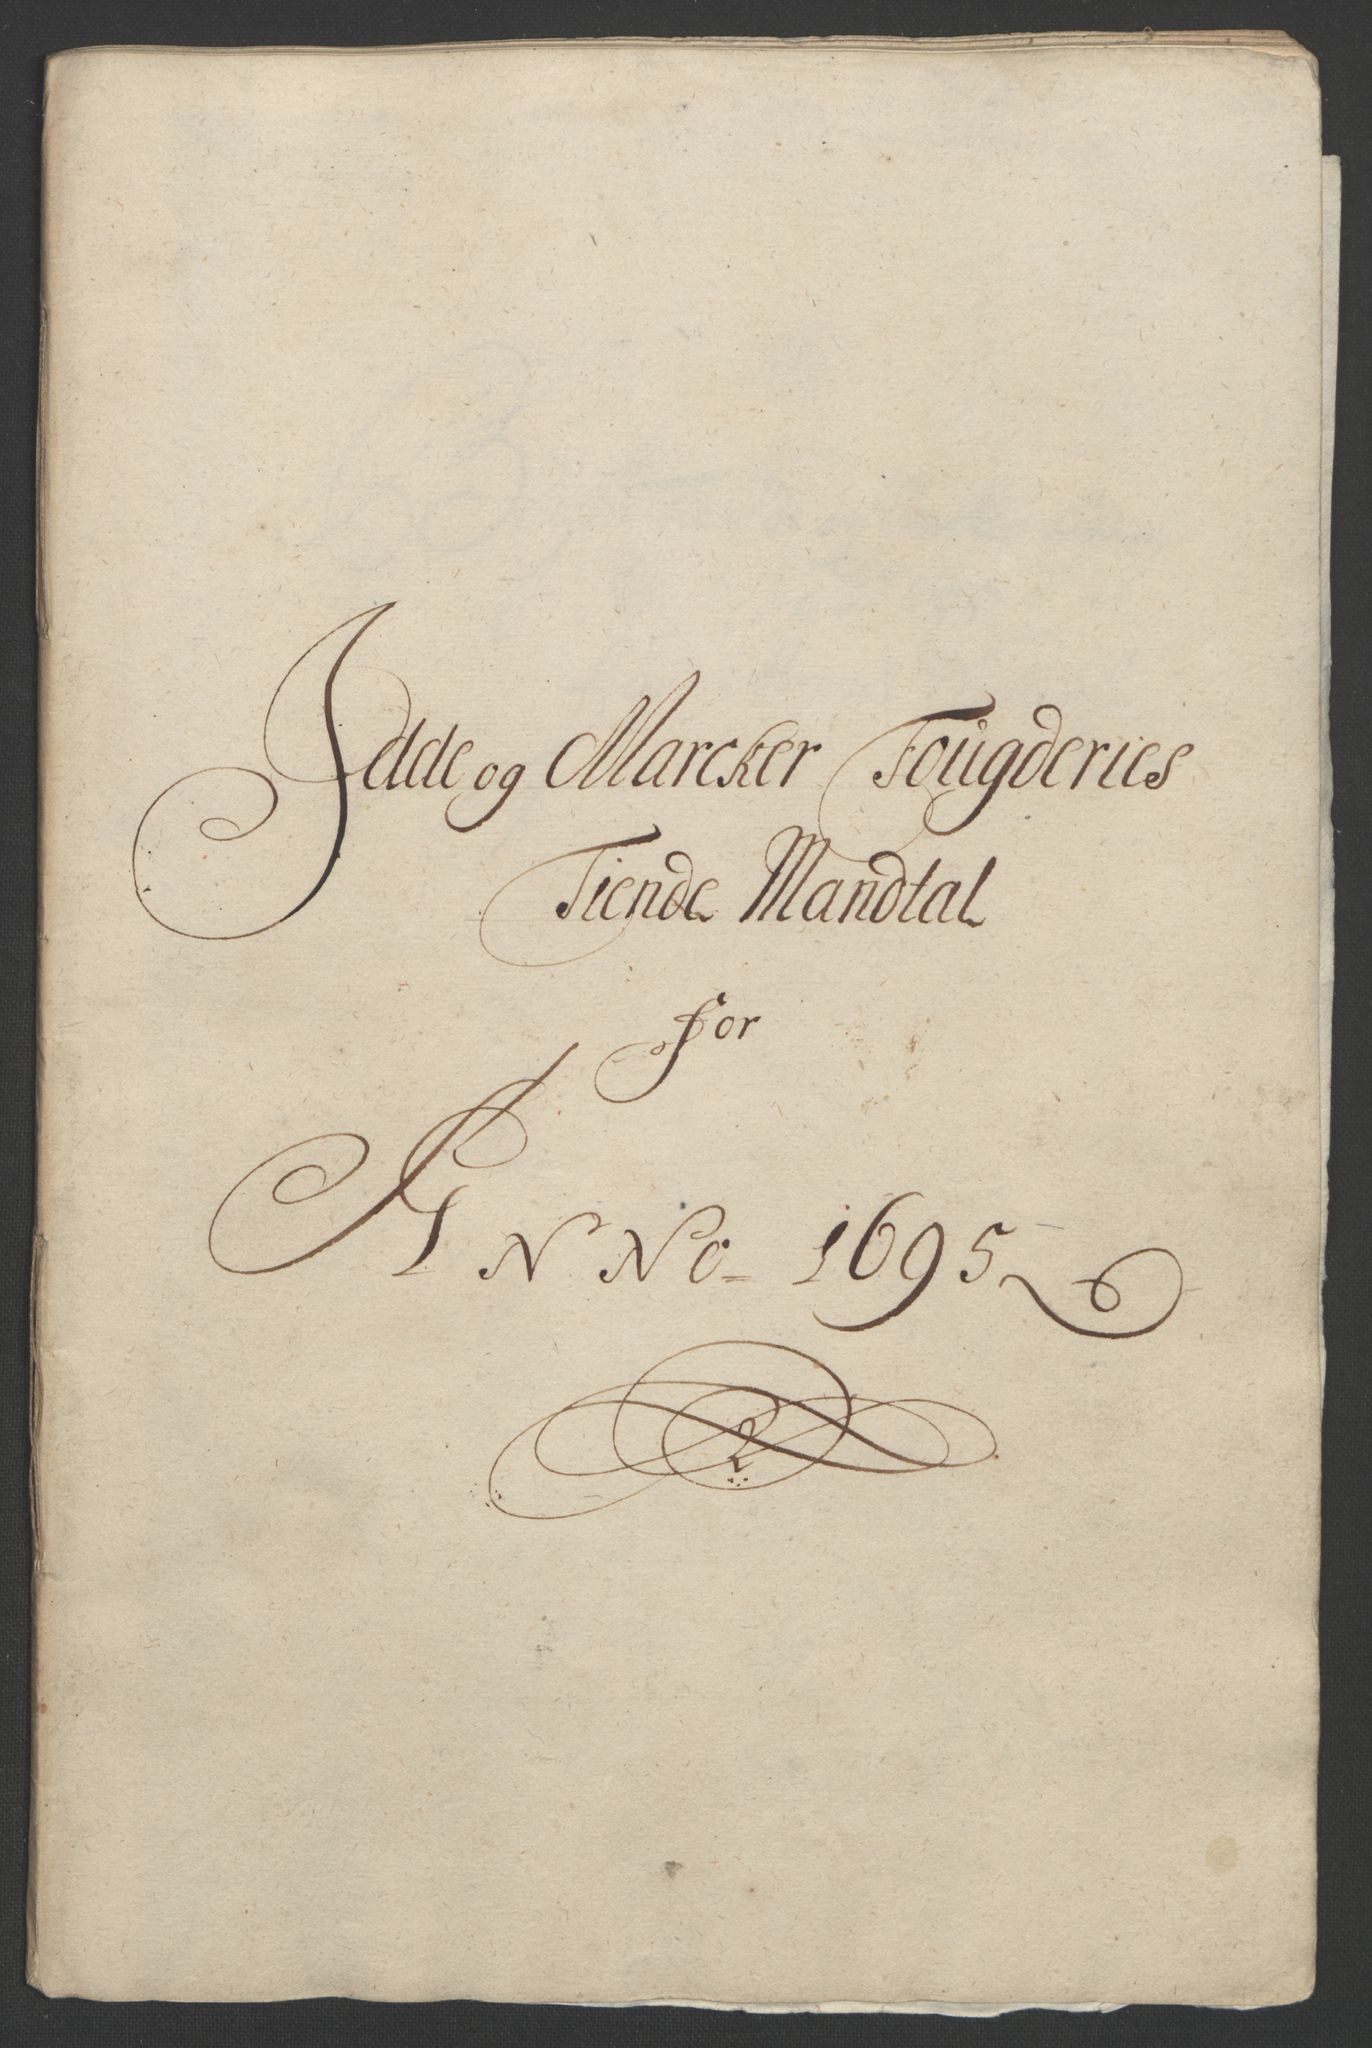 Idde og Marcker Fougderies
Tiende Mandtal
for
ANNo 1695